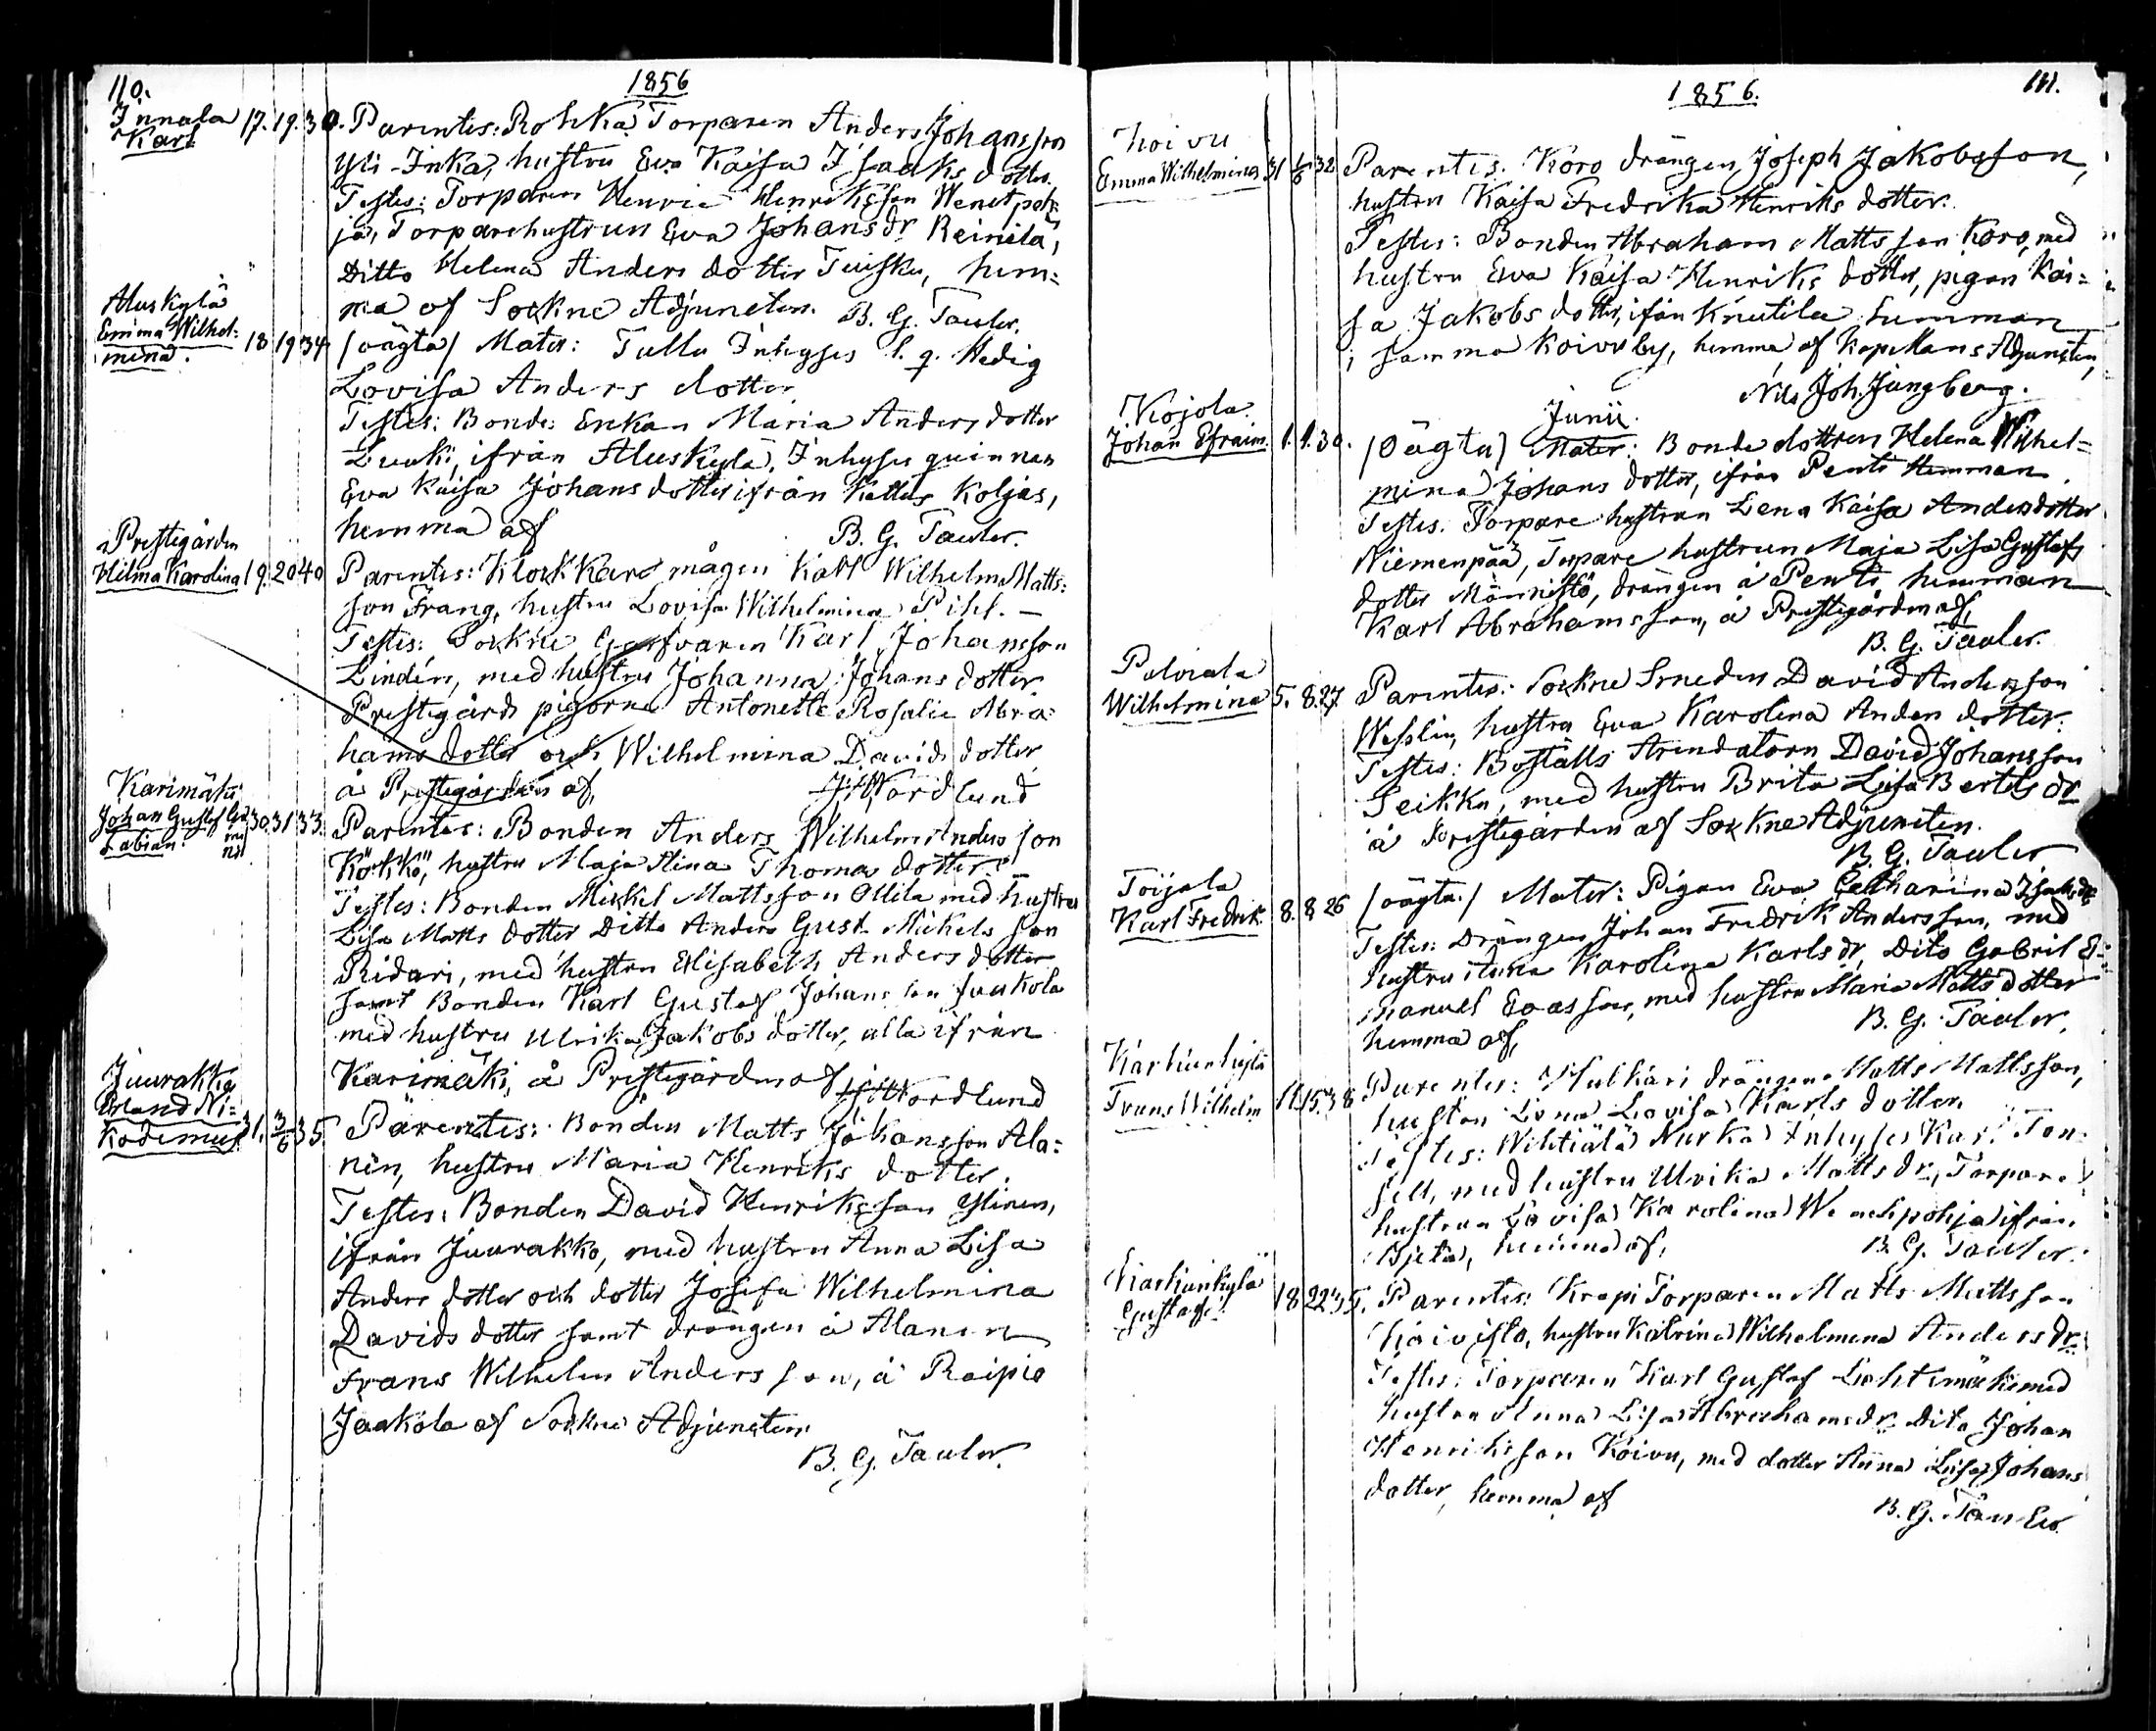 110.
1856
Innala
Karl
17. 19. 30. Parentes: Rohka Torparen Anders Johansson
Yli-Inka, hustru Eva Kaisa Isaaks dotter.
Testes: Torparen Henric Henriksson Wenetpoh=
ja, Torparehustrun Eva Johansdr Reinilä,
Ditto Helena Anders dotter Tuisku, hem=
ma af Sockne Adjuncten. B. G. Tauler.
Aluskylä
Emma Wilhel=
mina.
18 19 34 /oägta/ Mater: Tullu Inhyses l. q. Hedig
Lovisa Anders dotter.
Testes: Bonde Enkan Maria Anders dotter
ifrån Aluskylä, Inhyses quinnan
Eva Kaisa Johans dotter ifrån Koljas,
hemma af B. G. Tauler.
Prestegården
Hilma Karolina
19. 20 40 Parentes: Klockkare mågen Karl Wilhelm Matts=
son Frang, hustru Lovisa Wilhelmina Pihl. —
Testes: Sockne Garfvaren Karl Johansson
Lindén, med hustru Johanna Johans dotter
Prestegårds pigorna Antonette Rosalie Abra=
hams dotter och Wilhelmina Davids dotter
å Prestegården af, Nordlund
Karimäki
Johan Gustaf
Fabian.
30 31 33. Parentes: Bonden Anders Wilhelm Anders son
Körkkö, hustru Maja Stina Thomas dotter.
Testes: Bonden Mickel Mattsson Ollila med hustru
Lisa Matts dotter Ditto Anders Gust. Mickels son
Ridari, med hustru Elisabeth Anders dotter
samt Bonden Karl Gustaf Johans son Jaakola
med hustru Ulrika Jakobs dotter, alla ifrån
Karimäki, å Prestegården af Nordlund
Juurakko
Erland Ni=
kodemus
31. 3/6 35. Parentes: Bonden Matts Johansson Ala=
nen, hustru Maria Henriks dotter.
Testes: Bonden David Henriksson Ylinen,
ifrån Juurakko, med hustru Anna Lisa
Anders dotter och dotter Josefa Wilhelmina
Davids dotter samt drängen å Alanen
Frans Wilhelm Anders son, å Raipio
Jaakola af Sockne Adjuncten.
B. G. Tauler.
1856.
111.
Koivu
Emma Wilhelmina
31 1/6 32 Parentes. Koro drängen Joseph Jakobsson,
hustru Kaisa Fredrika Henriks dotter.
Testes: Bonden Abraham Matts son Koro, med
hustru Eva Kaisa Henriks dotter, pigan Kai=
sa Jakobs dotter, ifrån Knutila hemman
i samma Koivu by, hemma af Kapellans Adjuncten,
Nils Joh. Jungberg.
Junii.
Kojola
Johan Efraim.
1. 1. 30. /Oägta/ Mater: Bonde dottren Helena Wilhel=
mina Johans dotter, ifrån Penti Hemman.
Testes. Torpare hustrun Lena Kaisa Andersdotter
Niemenpää, Torpare hustrun Maja Lisa Gustafs
dotter Männistö, drängen å Penti hemman
Karl Abrahamsson, å Prestegården af,
B. G. Tauler.
Wilhelmina
5. 8. 27. Parentes: Sockne Smeden David Andersson
Wesslin, hustru Eva Karolina Anders dotter.
Testes: Boställs Arendatorn David Johansson
Seikku, med hustru Brita Lisa Bertils dr
å Prestegården af Sockne Adjuncten.
B. G. Tauler
Toijala
Karl Fredrik
8. 8 26 /oägta/ Mater: Pigan Eva Catharina Isaksdr
Testes: Drängen Johan Fredrik Andersson, med
hustru Karolina Karls dr, Dito Gabriel E=
manuel Esasson, med hustru Maria Matts dotter
hemma af, B. G. Tauler.
Karhunkylä
Frans Wilhelm
11. 15. 38 Parentes: drängen Matts Mattsson,
hustru Lena Lovisa Karls dotter.
Testes: Nurka Inhyses Karl
med hustru Ulrika Matts dr, Torpare
hustrun Lovisa Karolina Wenetpohja ifrån
hemma af, B. G. Tauler.
Karhunkylä
Gustaf.
18 22 35. Parentes: Krapi Torparen Matts Mattsson
Koivisto, hustru Katrina Wilhelmina Anders dr.
Testes: Torparen Karl Gustaf Lehtimäki med
hustru Anna Lisa Abrahamsdr. Dito Johan
Henriksson Koivu, med dotter Anna Lisa Johans
dotter, hemma af B. G. Tauler.